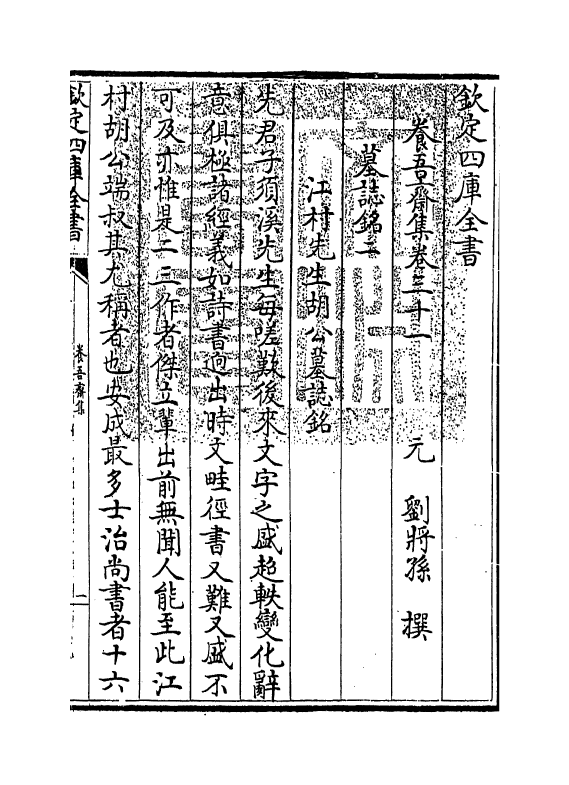 欽定四庫全書
養吾齋集卷三十一 元 劉將孫 撰
墓誌銘二
江村先生胡公墓誌銘
先君子須溪先生每嗟歎後來文字之盛超軼變化辭
意俱極諸經義如詩書迥出時文畦徑書又難又盛不
可及亦惟是二三作者傑立輩出前無聞人能至此江
村胡公端叔其尤稱者也安成最多士治尚書者十六
欽定四庫全書
養吾齋集